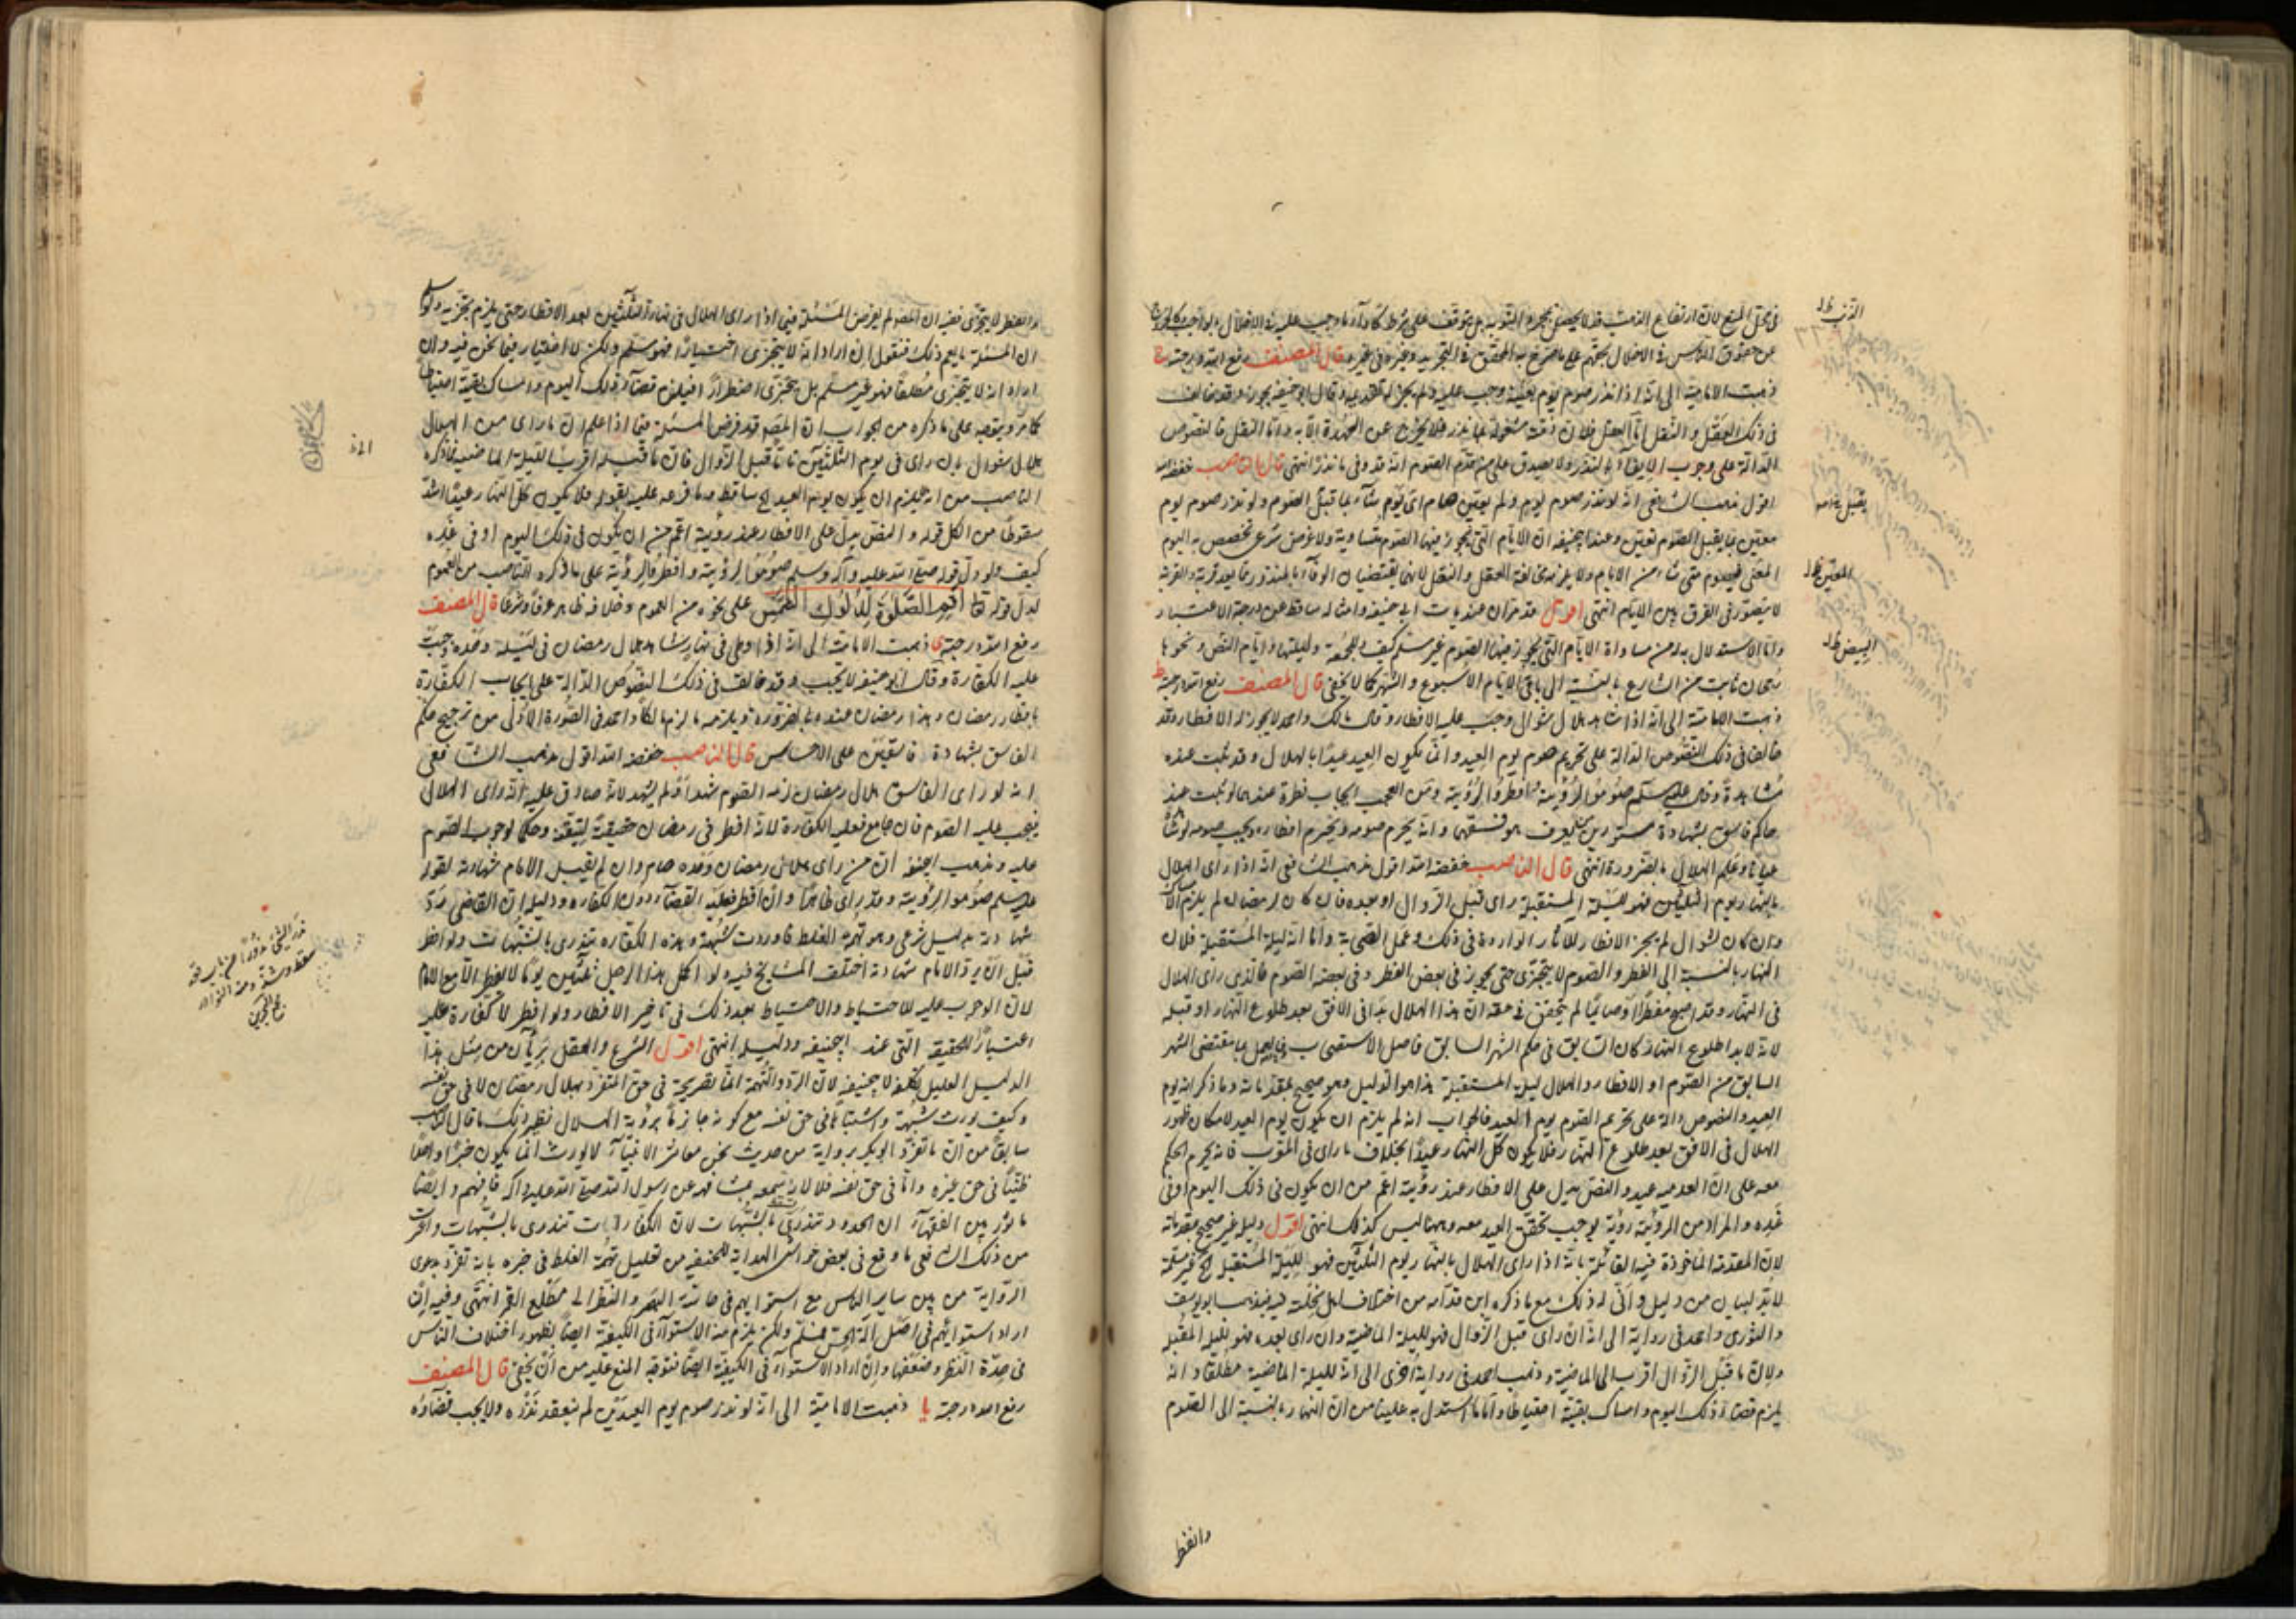 في محل المنع لأن ارتفاع الذنب قد لا يحصل بمجرد التوبة بل يتوقف على شرط كأداء ما وجب عليه في الاخلال
من حقوق الناس في الاخلال بحكم على ما صرح به المحقق في التجريد وغيره في غيره قال المصنف رفع الله درجته
ذهبت الامامية الى انه اذا نذر صوم يوم بعينه وجب عليه ولم يجز له تقديمه وقال ابو حنيفة يجوز وقد خالف
في ذلك العقل والنقل اما العقل فلان ذمته مشغولة بما نذر فلا يخرج عن العهدة الا به واما النقل فالنصوص
الدالة على وجوب الايفاء بالنذر ولا يصدق على من قدم الصوم انه قد وفى ما نذر انتهى قال الناصب خفضه الله
اقول مذهب الشافعي انه لو نذر صوم يوم ولم يعين صام اى يوم شاء مما قبل الصوم ولو نذر صوم يوم
معين مما يقبل الصوم تعين وعند ابي حنيفة ان الايام التي يجوز فيها الصوم متساوية ولا غرض شرعي تخصص به اليوم
المعين فيصوم متى شاء من الايام ولا يلزمه مخالفة العقل والنقل لانهما يقتضيان الوفاء بالمنذور فيما يعد قربة والقربة
لا يتصور في الفرق بين الايام انتهى اقول قد مر ان عنديات ابي حنيفة وامثاله ساقط عن درجة الاعتبار
واما الاستدلال به من مساواة الايام التي يجوز فيها الصوم غير مسلم كيف وللجمعة وليلتها وايام البيض ونحوها
رجحان ثابت من الشارع بالنسبة الى باقي الايام الاسبوع والشهر كما لا يخفى قال المصنف رفع الله درجته
ذهبت الامامية الى انه اذا شاهد هلال شوال وجب عليه الافطار وقال مالك واحمد لا يجوز له الافطار وقد
خالفا في ذلك النصوص الدالة على تحريم صوم يوم العيد وانما يكون العيد عيدا بالهلال وقد ثبت عنده
مشاهدة وقال عليه السلام صوموا لرؤيته وافطروا لرؤيته ومن العجب ايجاب فطره عندهما لو ثبت عند
حاكم فاسق بشهادة مستورين يعرف هو فسقهما وانه يحرم صومه ويحرم افطاره ويجب صومه لو شاهد
عيانا وعلم الهلال بالضرورة انتهى قال الناصب خفضه الله اقول مذهب الشافعي انه اذا رأى الهلال
بالنهار يوم الثلثين فهو لليلة المستقبلة رأى قبل الزوال او بعده فان كان لرمضان لم يلزم الامساك
وان كان لشوال لم يجز الافطار للآثار الواردة في ذلك وعمل الصحابة واما انه ليلة المستقبلة فلان
النهار بالنسبة الى الفطر والصوم لا يتجزى حتى يجوز في بعض الفطر وفي بعضه الصوم فالذي رأى الهلال
في النهار وقد اصبح مفطرا او صائما لم يتحقق في حقه ان هذا الهلال بدا في الافق بعد طلوع النهار او قبله
لانه لا بد اطلوع النهار كان السابق في حكم الشهر السابق فاصل الاستصحاب يعمل بما يقتضي الشهر
السابق من الصوم او الافطار والهلال ليلة المستقبلة هذا هو الدليل وهو صحيح بمقدماته وما ذكر انه يوم
العيد والنصوص دالة على تحريم الصوم يوم العيد فالجواب انه لم يلزم ان يكون يوم العيد لامكان ظهور
الهلال في الافق بعد طلوع النهار فلا يكون كل النهار عيدا بخلاف ما رأى في المغرب فانه يحرم الحكم
معه على ان الغد عيد والنص يدل على الافطار عند رؤية اعم من ان يكون في ذلك اليوم او في
غده والمراد من الرؤية رؤية يوجب تحقق العيد معه وههنا ليس كذلك انتهى اقول دليله غير صحيح بمقدماته
لان المقدمة المأخوذة فيه القائلة بانه اذا رأى الهلال بالنهار يوم الثلثين فهو لليلة المستقبل غير مسلمة
لا بد لبيان من دليل وانى له ذلك مع ما ذكره ابن قدامة من اختلاف اهل نحلته فيه فذهب ابو يوسف
والثوري واحمد في رواية الى انه ان رأى قبل الزوال فهو لليلة الماضية وان رأى بعده فهو لليلة المقبلة
ولان ما قبل الزوال اقرب الى الماضية وذهب احمد في رواية اخرى الى انه لليلة الماضية مطلقا وانه
يلزم قضاء ذلك اليوم وامساك بقيته احتياطا واما ما استدل به علينا من ان النهار بالنسبة الى الصوم
والفطر
الذنب ظ
يقبل
المعين ظ
البيض ظ
والفطر لا يتجزى ففيه ان المصنف لم يفرض المسئلة فيما اذا رأى الهلال في نهار الثلثين بعد الافطار حتى يلزم تجزيه ولو سلم
ان المسئلة ما يعم ذلك فنقول ان اراد انه لا يتجزى اختيارا فهو مسلم ولكن لا اختيار فيما نحن فيه وان
اراد انه لا يتجزى مطلقا فهو غير مسلم بل يتجزى اضطرارا فيلزم قضاء ذلك اليوم وامساك بقيته احتياطا
كما مر ويتوجه على ما ذكره من الجواب ان المصنف قد فرض المسئلة فيما اذا علم ان ما رأى من الهلال
هلال شوال بان رأى في يوم الثلثين ما قبل الزوال فان ما قبله اقرب لليلة الماضية فما ذكره
الناصب من انه لم يلزم ان يكون يوم العيد الخ ساقط وما فرعه عليه بقوله فلا يكون كل النهار عيدا اشد
سقوطا من الكل قوله والنص يدل على الافطار عند رؤية اعم من ان يكون في ذلك اليوم او في غده
كيف ولو دل قوله صلى الله عليه وآله وسلم صوموا لرؤيته وافطروا لرؤيته على ما ذكره الناصب من العموم
لدل قوله تعالى أقم الصلوة لدلوك الشمس على نحوه من العموم وخلافه ظاهر عرفا وشرعا قال المصنف
رفع الله درجته ى ذهبت الامامية الى انه اذا وطى في نهار شاهد هلال رمضان في ليلة وحده وجبت
عليه الكفارة وقال ابو حنيفة لا يجب وقد خالف في ذلك النصوص الدالة على ايجاب الكفارة
بافطار رمضان وهذا رمضان عنده بالضرورة ويلزمه ما لزم مالكا واحمد في الصورة الاولى من ترجيح حكم
الفاسق بشهادة فاسقين على الاحساس قال الناصب خفضه الله اقول مذهب الشافعي
انه لو رأى الفاسق هلال رمضان لزمه الصوم شهد او لم يشهد لانه صادق عليه انه رأى الهلال
فيجب عليه الصوم فان جامع فعليه الكفارة لانه افطر في رمضان حقيقة ليتقنه وحكما لوجوب الصوم
عليه ومذهب ابي حنيفة ان من رأى هلال رمضان وحده صام وان لم يقبل الامام شهادته لقوله
عليه السلام صوموا لرؤيته وقد رأى ظاهرا وان افطر فعليه القضاء دون الكفارة ودليله ان القاضي رد
شهادته بدليل شرعي وهو تهمة الغلط فاورثت شبهة وهذه الكفارة تندرى بالشبهات ولو افطر
قبل ان يرد الامام شهادته اختلف المشايخ فيه ولو اكمل هذا الرجل ثلثين يوما لا يفطر الا مع الامام
لان الوجوب عليه للاحتياط والاحتياط بعد ذلك في تأخير الافطار ولو افطر لا كفارة عليه
اعتبارا للحقيقة التي عند ابي حنيفة ودليله انتهى اقول الشرع والعقل بريئان من مثل هذا
الدليل العليل لابي حنيفة لان الرد والتهمة انما تصريحه في حق المتفرد بهلال رمضان لا في حق نفسه
وكيف يورث شبهة واشتباها في حق نفسه مع كونه جازما برؤية الهلال نظير ذلك ما قال الناصب
سابقا من ان ما تفرد ابو بكر برواية من حديث نحن معاشر الانبياء لا نورث انما يكون خبرا واحدا
ظنيا في حق غيره واما في حق نفسه فلا لانه سمعه مشافهة عن رسول الله صلى الله عليه وآله فافهم وايضا
ان الحدود تندرئ بالشبهات لان الكفارات تندرى بالشبهات واغرب
من ذلك ما وقع في بعض حواشي الهداية للحنفية من تعليل تهمة الغلط في خبره بانه تفرد بدعوى
الرواية من بين ساير الناس مع استوائهم في حاسة البصر والنظر الى مطلع القمر انتهى وفيه ان
اراد استوائهم في اصل آلة الحس فمسلم ولكن لا يلزم منه الاستواء في الكيفية ايضا لظهور اختلاف الناس
في حدة النظر وضعفها وان اراد الاستواء في الكيفية ايضا فتوجه المنع عليه من ان يخفى قال المصنف
رفع الله درجته يا ذهبت الامامية الى انه لو نذر صوم يوم العيدين لم ينعقد نذره ولا يجب قضاؤه